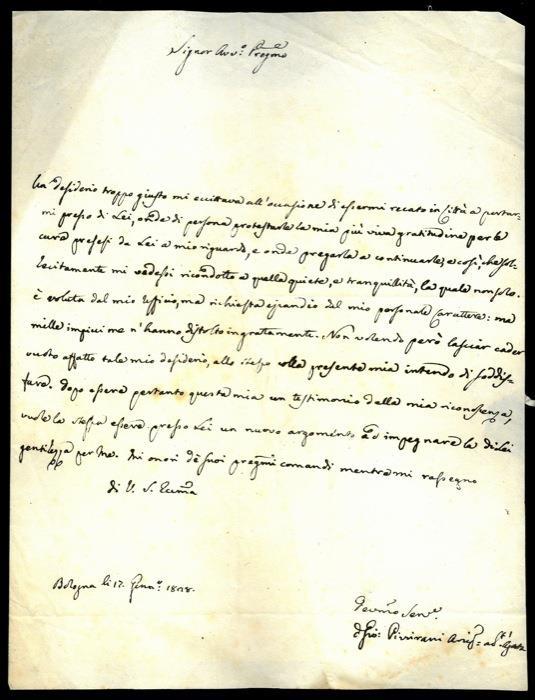 Signor Avv.º Pregmo
Un desiderio troppo giusto mi eccittava all'occasione di essermi recato in Città a portar-
mi presso di Lei, onde di persona protestarle la mia più viva gratitudine per le
cure presesi da Lei a mio riguardo, e onde pregarla a continuarle, e così, che sol-
lecitamente mi vedessi ricondotto a quella quiete, e tranquillità, la quale non solo
è voluta dal mio Uffizio, ma richiesta eziandio dal mio personale Carattere: ma
mille impicci me n'hanno distolto ingratamente. Non volendo però lasciar cader
vuoto affatto tale mio desiderio, allo stesso colla presente mia intendo di soddis-
fare. Dopo essere pertanto questa mia un testimonio della mia riconoscenza,
vuole la stessa essere presso Lei un nuovo argomento ad impegnare la di Lei
gentilezza per me. Mi onori de suoi pregmi comandi mentre mi rassegno
di V. S. Eccma
Bologna li 17. Genn.º 1828.
Devmo Serv.e
Gio: Pivirani